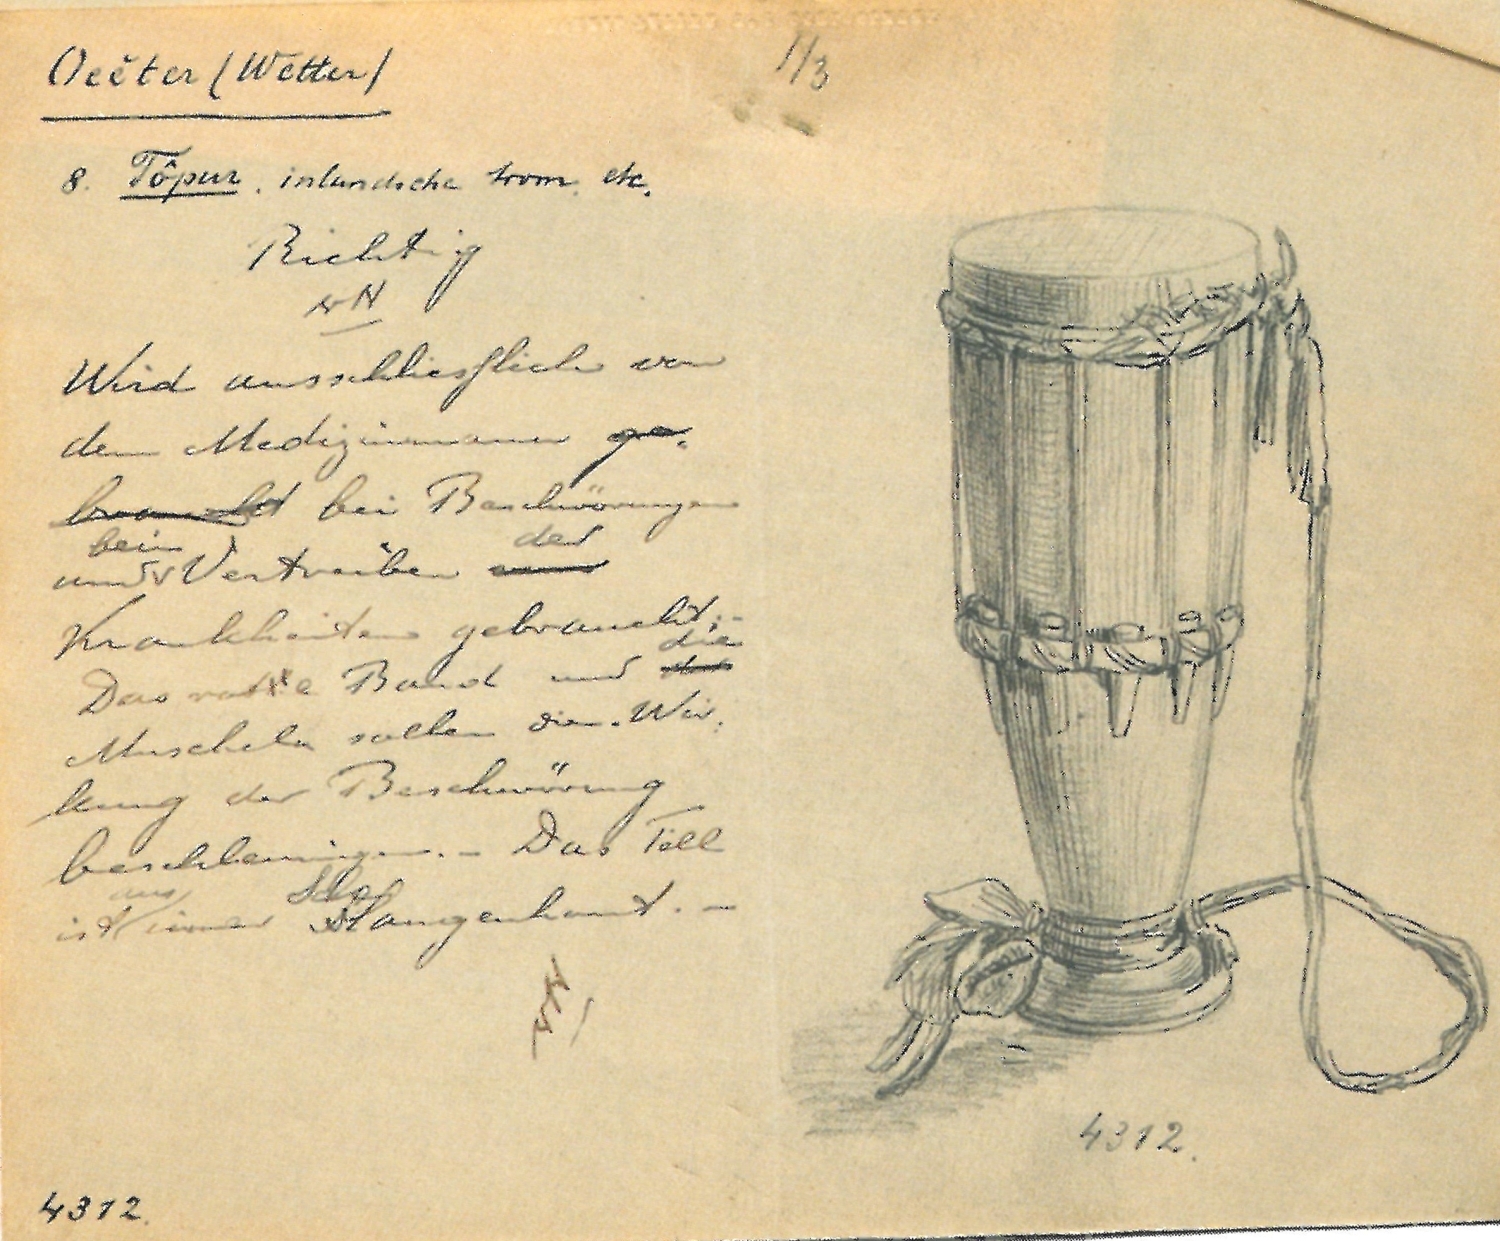 Oeĕter (Wĕtter)
1/3
8. Tôpur, inlandsche trom, etc.
Richtig
vN
Wird ausschliesslich von
dem Medizinmann ge-
braucht bei Beschwörungen
beim der
und Vertreiben
Krankheiten gebraucht;-
die
Das rote Band und das
Muscheln sollen die Wir-
kung der Beschwörung
beschleunigen. - Das Fell
aus Schl
ist immer Schlangenhaut. -
vN
4312.
4312.